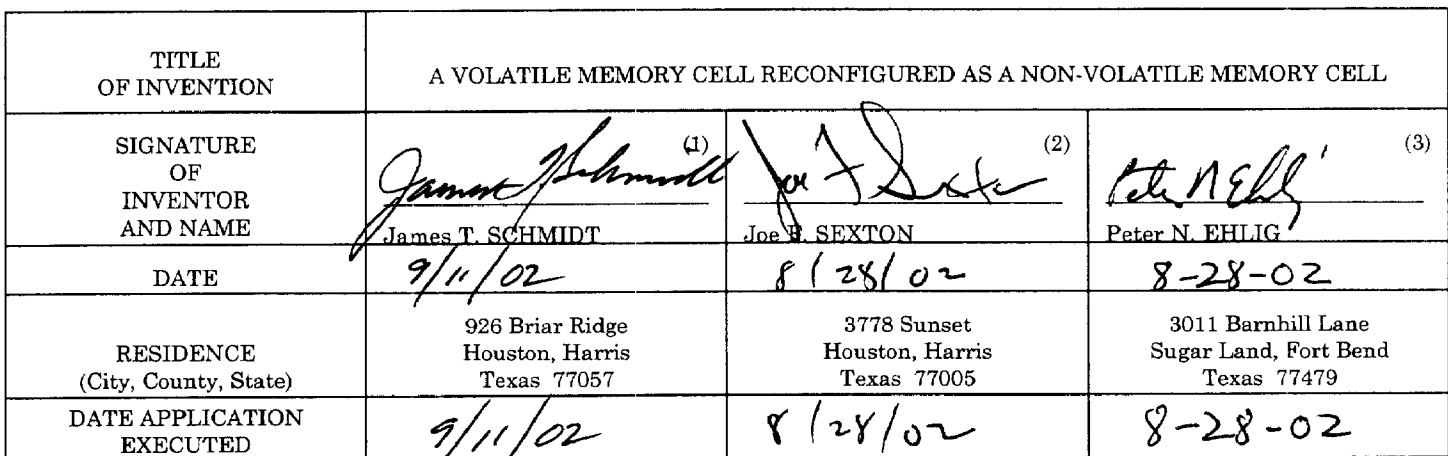 TITLE
OF INVENTION
A VOLATILE MEMORY CELL RECONFIGURED AS A NON-VOLATILE MEMORY CELL
SIGNATURE
OF
INVENTOR
AND NAME
(1)
James T Schmidt
James T. SCHMIDT
(2)
Joe F Sexton
Joe F. SEXTON
(3)
Peter N Ehlig
Peter N. EHLIG
DATE
9/11/02
8/28/02
8-28-02
RESIDENCE
(City, County, State)
926 Briar Ridge
Houston, Harris
Texas 77057
3778 Sunset
Houston, Harris
Texas 77005
3011 Barnhill Lane
Sugar Land, Fort Bend
Texas 77479
DATE APPLICATION
EXECUTED
9/11/02
8/28/02
8-28-02